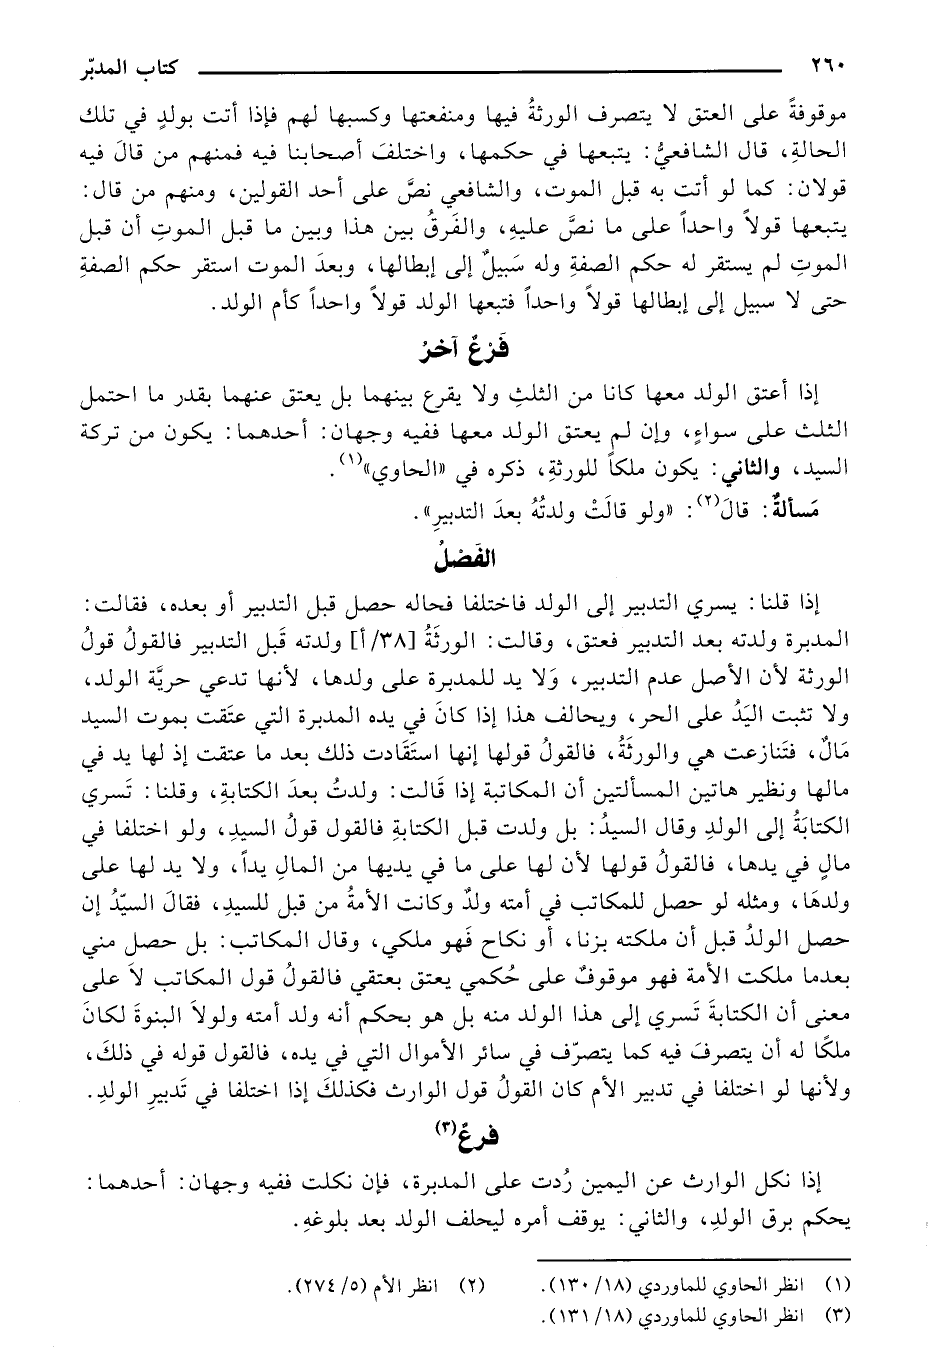 ٢٦٠ كتاب المدبّر
موقوفةً على العتق لا يتصرف الورثةُ فيها ومنفعتها وكسبها لهم فإذا أتت بولدٍ في تلك
الحالةِ، قال الشافعيُّ: يتبعها في حكمها، واختلفَ أصحابنا فيه فمنهم من قالَ فيه
قولان: كما لو أتت به قبل الموت، والشافعي نصَّ على أحد القولين، ومنهم من قال:
يتبعها قولاً واحداً على ما نصَّ عليهِ، والفَرقُ بين هذا وبين ما قبل الموتِ أن قبل
الموتِ لم يستقر له حكم الصفةِ وله سَبيلٌ إلى إبطالها، وبعدَ الموت استقر حكم الصفةِ
حتى لا سبيل إلى إبطالها قولاً واحداً فتبعها الولد قولاً واحداً كأم الولد.
فَرْعٌ آخرُ
إذا أعتق الولد معها كانا من الثلثِ ولا يقرع بينهما بل يعتق عنهما بقدر ما احتمل
الثلث على سواءٍ، وإن لم يعتق الولد معها ففيه وجهان: أحدهما: يكون من تركة
السيد، والثاني: يكون ملكاً للورثةِ، ذكره في «الحاوي»(١).
مَسألةٌ: قالَ(٢): «ولو قالَتْ ولدتُهُ بعدَ التدبيرِ».
الفَصْلُ
إذا قلنا: يسري التدبير إلى الولد فاختلفا فحاله حصل قبل التدبير أو بعده، فقالت:
المدبرة ولدته بعد التدبير فعتق، وقالت: الورثَةُ [٣٨/أ] ولدته قَبل التدبير فالقولُ قولُ
الورثة لأن الأصل عدم التدبير، وَلا يد للمدبرة على ولدها، لأنها تدعي حريَّة الولد،
ولا تثبت اليَدُ على الحر، ويحالف هذا إذا كانَ في يده المدبرة التي عتَقت بموت السيد
مَالٌ، فتَنازعت هي والورثَةُ، فالقولُ قولها إنها استَفَادت ذلك بعد ما عتقت إذ لها يد في
مالها ونظير هاتين المسألتين أن المكاتبة إذا قَالت: ولدتُ بعدَ الكتابةِ، وقلنا: تَسري
الكتابَةُ إلى الولدِ وقال السيدُ: بل ولدت قبل الكتابةِ فالقول قولُ السيدِ، ولو اختلفا في
مالٍ في يدها، فالقولُ قولها لأن لها على ما في يديها من المالِ يداً، ولا يد لها على
ولدهَا، ومثله لو حصل للمكاتب في أمته ولدٌ وكانت الأمةُ من قبل للسيدِ، فقالَ السيّدُ إن
حصل الولدُ قبل أن ملكته بزنا، أو نكاح فَهو ملكي، وقال المكاتب: بل حصل مني
بعدما ملكت الأمة فهو موقوفٌ على حُكمي يعتق بعتقي فالقولُ قول المكاتب لاَ على
معنى أن الكتابةَ تَسري إلى هذا الولد منه بل هو بحكم أنه ولد أمته ولولاَ البنوةَ لكانَ
ملكًا له أن يتصرفَ فيه كما يتصرّف في سائر الأموال التي في يده، فالقول قوله في ذلكَ،
ولأنها لو اختلفا في تدبير الأم كان القولُ قول الوارث فكذلكَ إذا اختلفا في تَدبيرِ الولدِ.
فرعٌ(٣)
إذا نكل الوارث عن اليمين رُدت على المدبرة، فإن نكلت ففيه وجهان: أحدهما:
يحكم برق الولدِ، والثاني: يوقف أمره ليحلف الولد بعد بلوغهِ.
(١) انظر الحاوي للماوردي (١٨/ ١٣٠). (٢) انظر الأم (٥/ ٢٧٤).
(٣) انظر الحاوي للماوردي (١٨/ ١٣١).